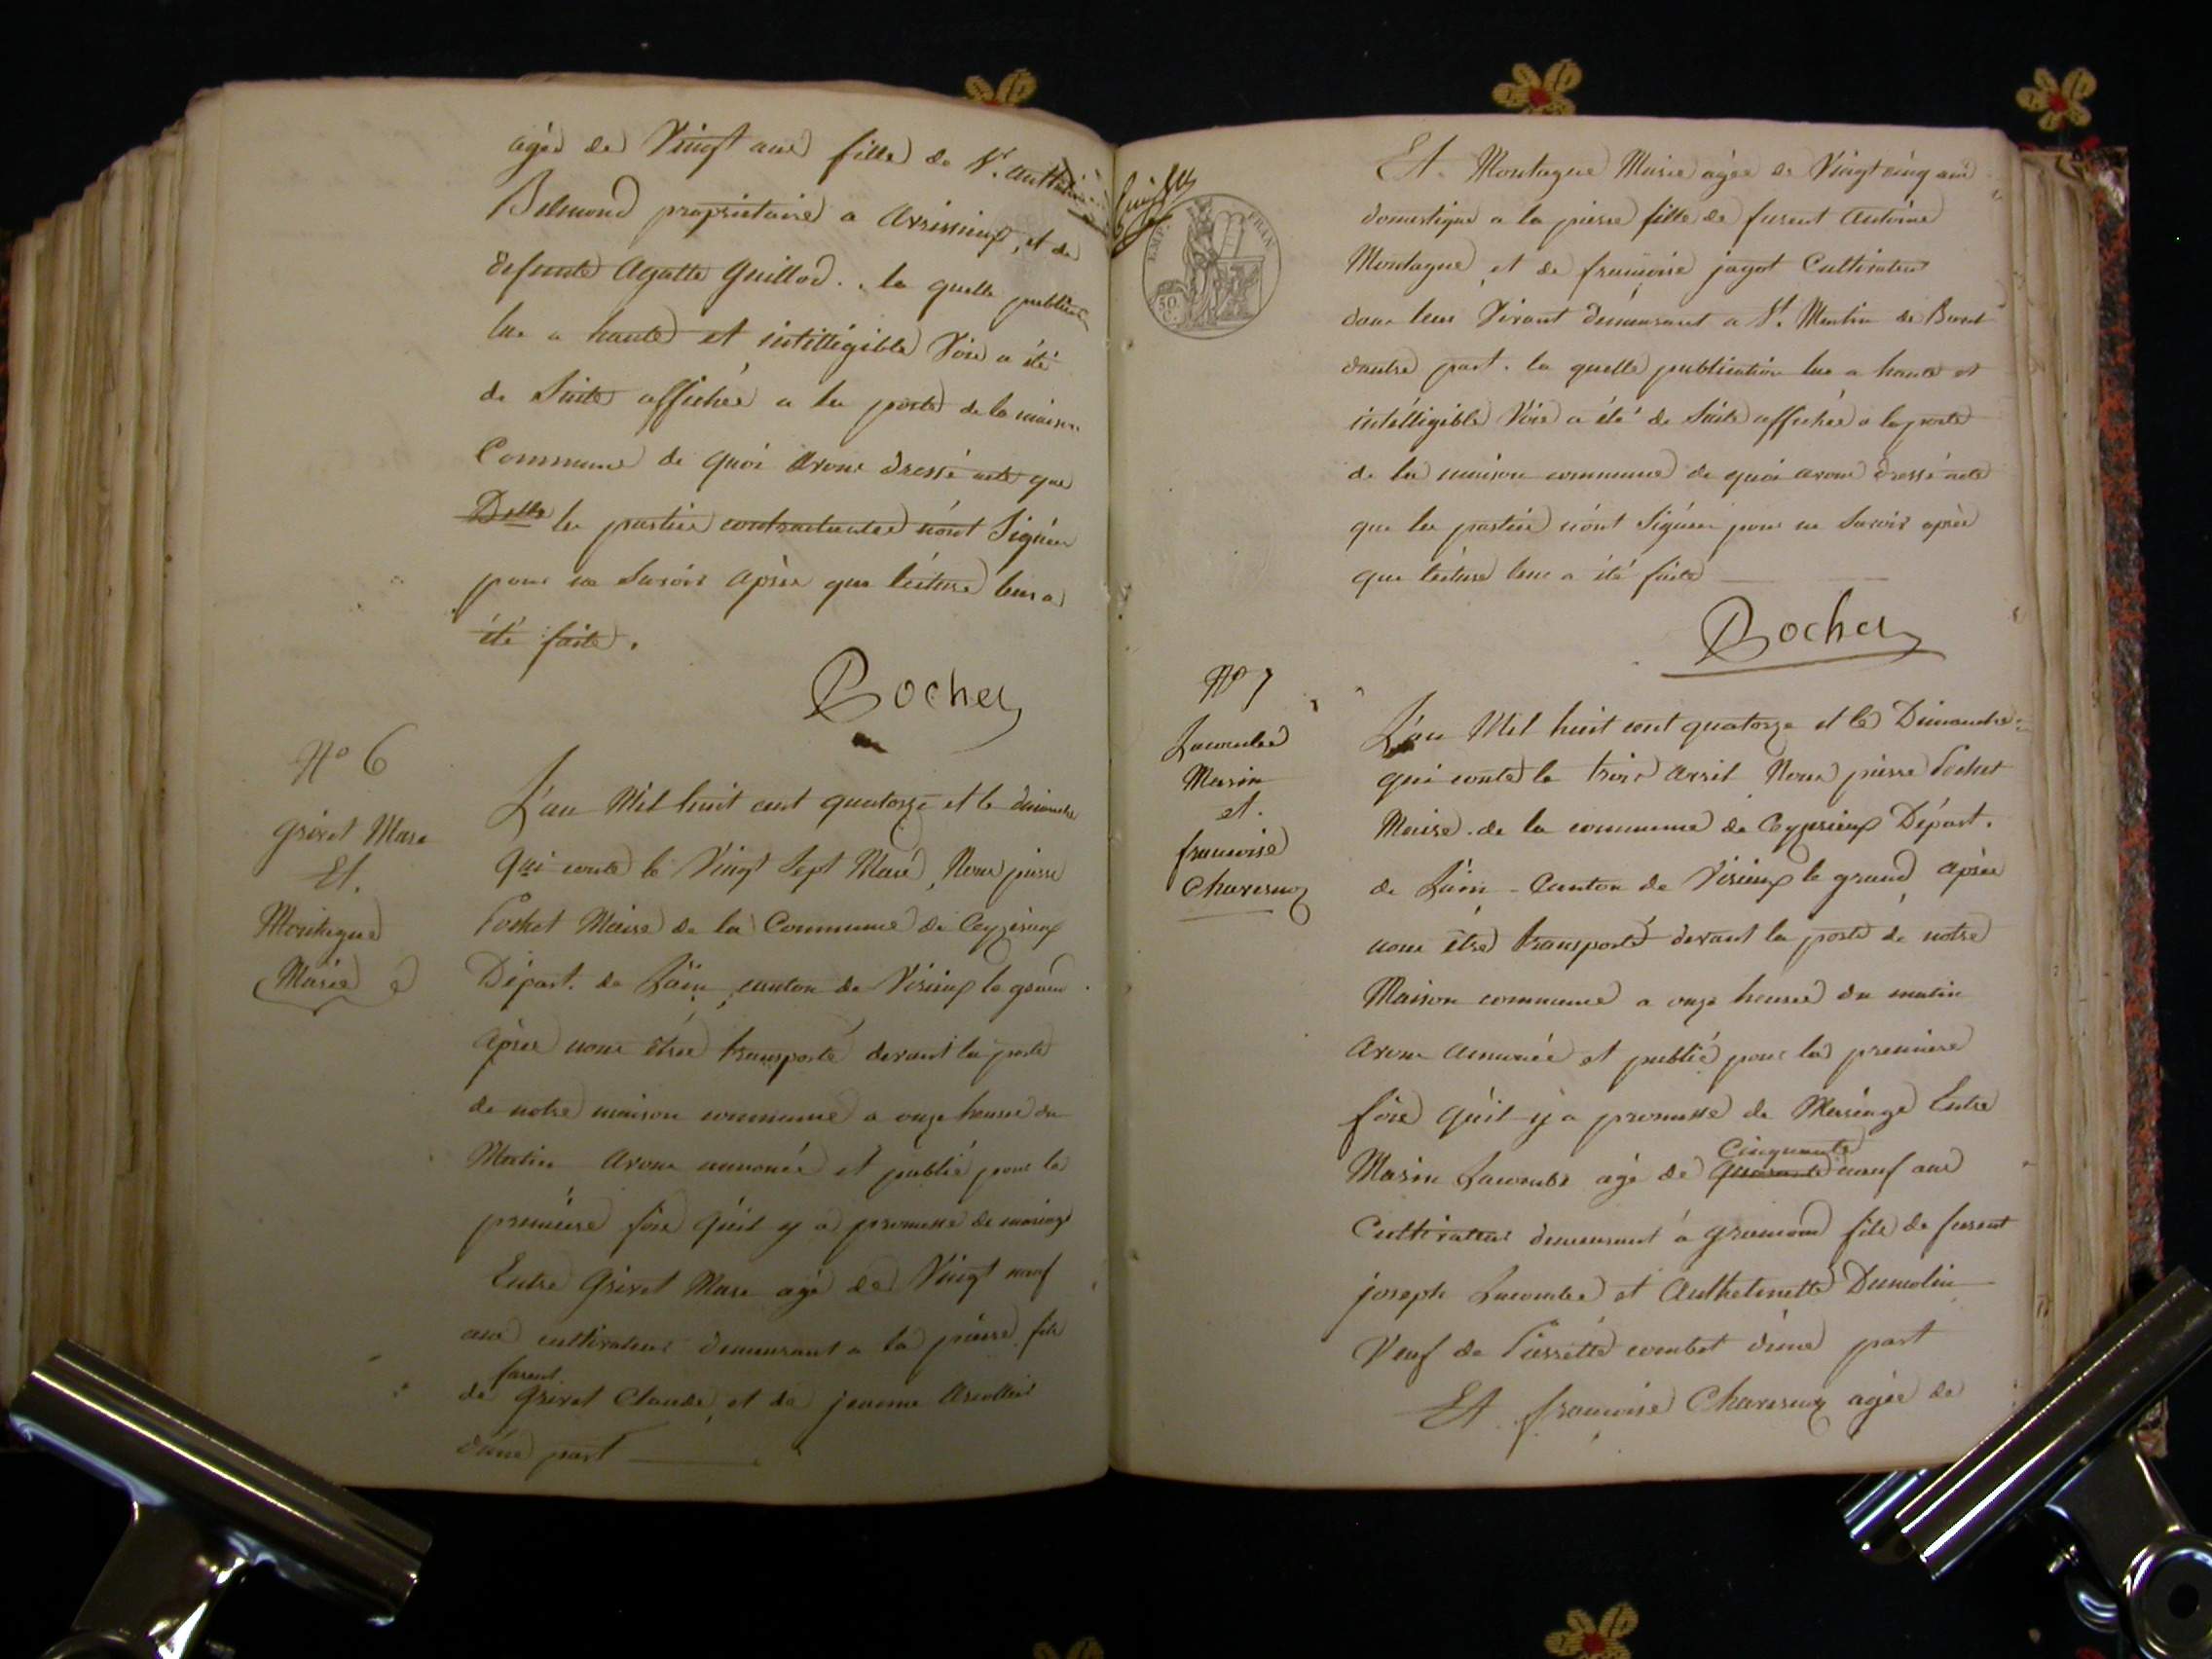 agée de Vingt ans fille de Sr. Anthelme
Belmond proprietaire a Arvissieux, et de
defunte Agatte Guillod. la quelle publication
lue a haute et intelligible Voix a été
de Suite affichée a la porte de la maison
Commune de quoi avons dressé acte que
Delle les parties contractantes n'ont Signées
pour ne Savoir après que lecture leur a
été faite.
Bochet
N° 6
Grivet Marc
Et.
Montagne
Marie
L'an Mil huit cent quatorze et le dimanche
qui conte le Vingt Sept Mars, Nous pierre
Bochet Maire de la Commune de Ceyzerieux
Départ. de L'ain, canton de Virieux le grand
Après nous être transporté devant la porte
de notre maison commune a onze heures du
Matin Avons annoncé et publié pour la
première fois qu'il y a promesse de mariage
Entre Grivet Marc agé de Vingt neuf
ans cultivateur demeurant a la pierre fils
de furent Grivet Claude, et de jeanne
d'une part
EMP. FRAN
50 C.
Et Montagne Marie agée de Vingt cinq ans
domestique a la pierre fille de furent Antoine
Montagne, et de françoise jagot Cultivateurs
dans leur Vivant demeurant a St. Martin de Bavel
d'autre part. la quelle publication lue a haute et
intelligible Voix a été de Suite affichée a la porte
de la maison commune de quoi avons dressé acte
que les parties n'ont Signées pour ne Savoir après
que lecture leur a été faite
Bochet
N° 7
Lacombe
Marin
et.
francoise
Charveux
L'an Mil huit cent quatorze et le Dimanche
qui conte le trois Avril Nous pierre Bochet
Maire de la commune de Ceyzerieux Départ.
de L'ain Canton de Virieux le grand après
nous être transporté devant la porte de notre
Maison commune a onze heures du matin
Avons Annoncé et publié pour la premiere
fois qu'il y a promesse de Mariage Entre
Marin Lacombe agé de quarante Cinquante neuf ans
Cultivateur demeurant à gramond fils de furent
joseph Lacombe et Anthelmette Dumolin
Veuf de Pierrette combet d'une part
Et francoise Charveux agée de